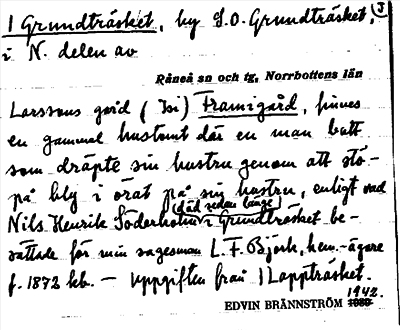 I Grundträsket, by S.O. Grundträsket, J
i N. delen av
Råneå sn och tg, Norrbottens län
Larssons gård (Isi) Framigård, finnes
en gammal hustomt där en man bott
som dräpte sin hustru genom att stö-
pa bly i örat på sin hustru, enligt vad
Nils Henrik Söderholm (död sedan länge) i Grundträsket be-
rättade för min sagesman L. F. Björk, hem.-ägare
f. 1872 hb. — Uppgiften från I Lappträsket.
EDVIN BRÄNNSTRÖM 1942.